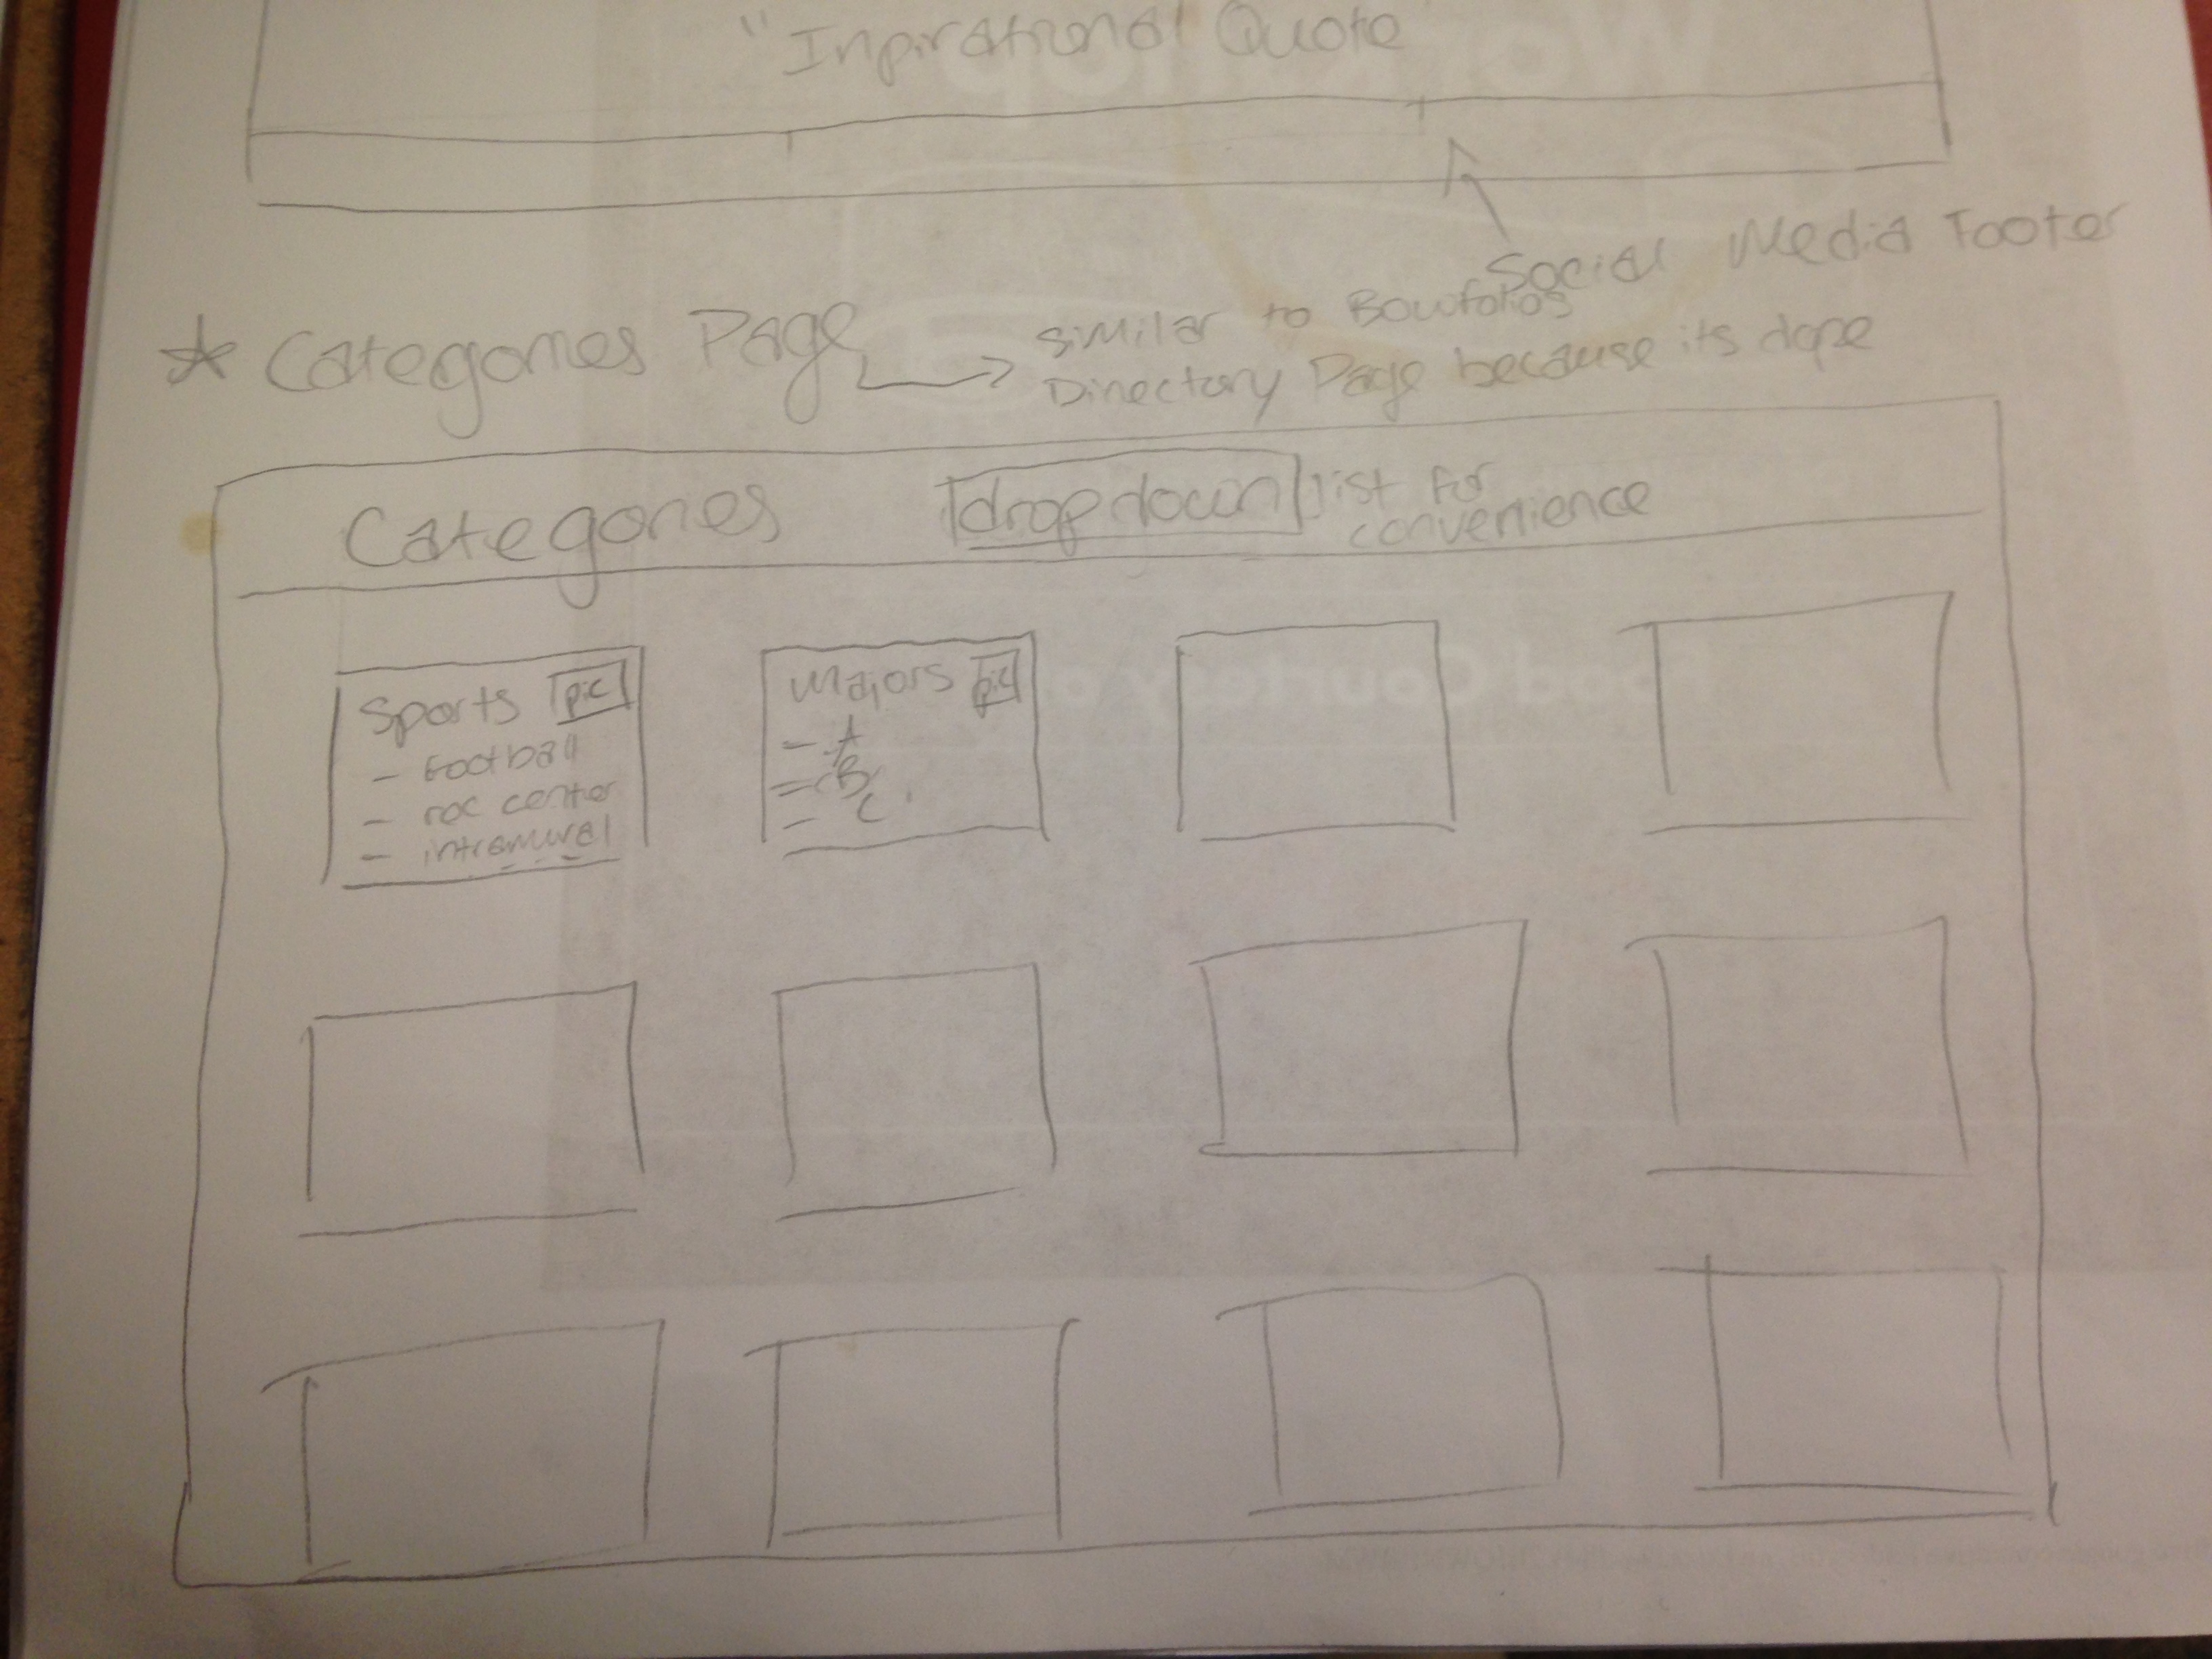 "Inpirational Quote
Social Media Footer
* Categories Page
similar to Bowfolios
Directory Page because its dope
Categories dropdown list for
convenience
Sports pic
- football
- rec center
- intramural
Majors pic
- A
- B
- C